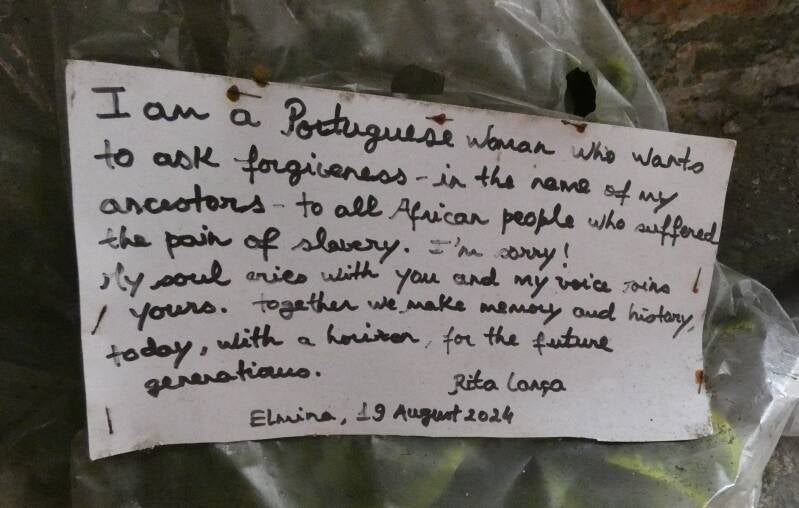 I am a Portuguese woman who wants
to ask forgiveness - in the name of my
ancestors - to all African people who suffered
the pain of slavery. I'm sorry!
My soul cries with you and my voice joins
yours. together we make memory and history,
today, with a horizon, for the future
generations.
Rita Lança
Elmina, 19 August 2024